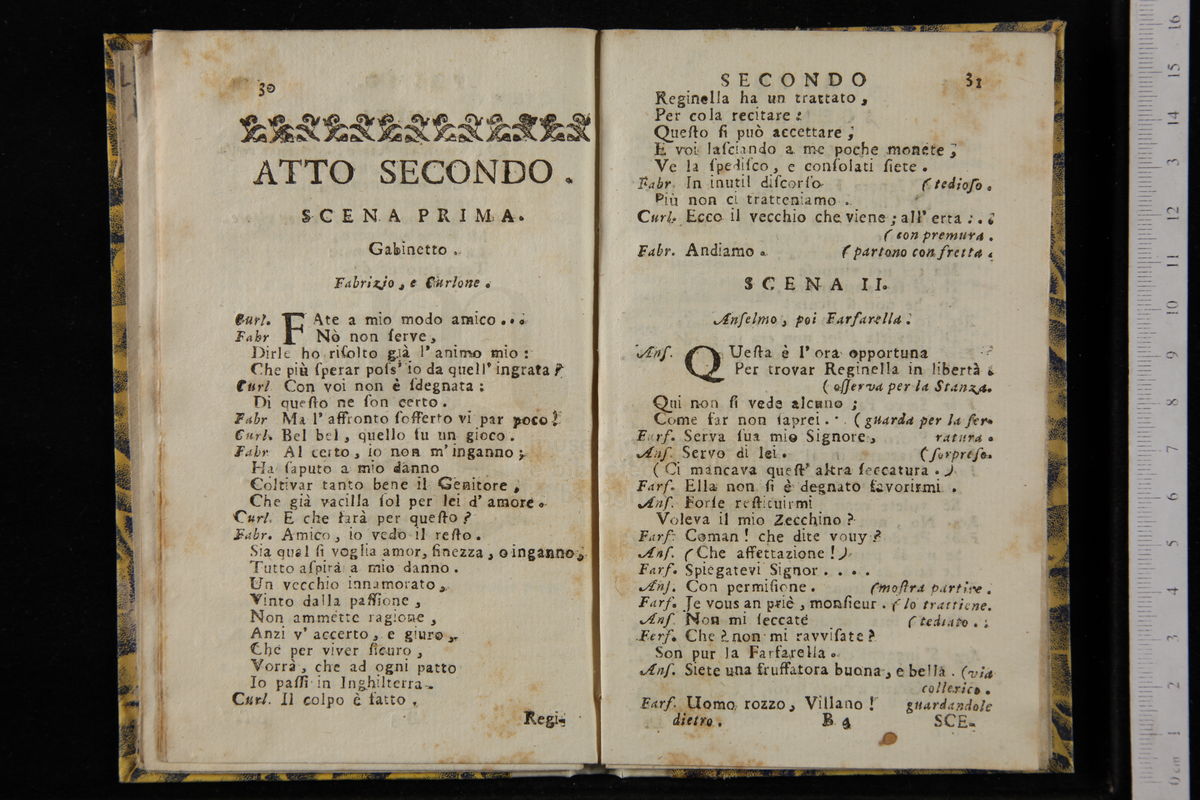 30
ATTO SECONDO .
SCENA PRIMA.
Gabinetto .
Fabrizio , e Curlone .
Curl. FAte a mio modo amico . . .
Fabr Nò non ſerve ,
Dirle ho riſolto già l' animo mio :
Che più ſperar poſs' io da quell' ingrata ?
Curl Con voi non è ſdegnata :
Di queſto ne ſon certo .
Fabr Ma l' affronto ſofferto vi par poco !
Curl. Bel bel , quello fu un gioco .
Fabr Al certo , io non m' inganno ;
Ha ſaputo a mio danno
Coltivar tanto bene il Genitore ,
Che già vacilla ſol per lei d' amore .
Curl. E che ſarà per queſto ?
Fabr. Amico , io vedo il reſto .
Sia qual ſi voglia amor, finezza , o inganno ,
Tutto aſpira a mio danno .
Un vecchio innamorato ,
Vinto dalla paſſione ,
Non ammette ragione ,
Anzi v' accerto , e giuro ,
Che per viver ſicuro ,
Vorrà , che ad ogni patto
Io paſſi in Inghilterra .
Curl. Il colpo è fatto .
Regi-
SECONDO 31
Reginella ha un trattato ,
Per cola recitare :
Queſto ſi può accettare ;
E voi laſciando a me poche monete ;
Ve la ſpediſco , e conſolati ſiete .
Fabr. In inutil diſcorſo (tedioſo .
Più non ci tratteniamo .
Curl. Ecco il vecchio che viene ; all' erta : . .
(con premura .
Fabr. Andiamo . (partono con fretta .
SCENA II.
Anſelmo , poi Farfarella .
Anſ. QUeſta è l' ora opportuna
Per trovar Reginella in libertà .
(oſſerva per la Stanza.
Quì non ſi vede alcuno ;
Come far non ſaprei . . (guarda per la ſer-
Farſ. Serva ſua mio Signore , ratura .
Anſ. Servo di lei . (ſorpreſo.
(Ci mancava queſt' altra ſeccatura . )
Farſ. Ella non ſi è degnato favorirmi .
Anſ. Forſe reſtituirmi
Voleva il mio Zecchino ?
Farſ. Coman ! che dite vouy ?
Anſ. (Che affettazione ! )
Farſ. Spiegatevi Signor . . . .
Anſ. Con permiſione . (moſtra partire .
Farſ. Je vous an priè , monſieur . (lo trattiene.
Anſ. Non mi ſeccate (tediato . .
Ferſ. Che ? non mi ravviſate ?
Son pur la Farfarella .
Anſ. Siete una fruffatora buona , e bella . (via
collerico .
Farſ. Uomo rozzo, Villano ! guardandole
dietro . B 4 SCE-